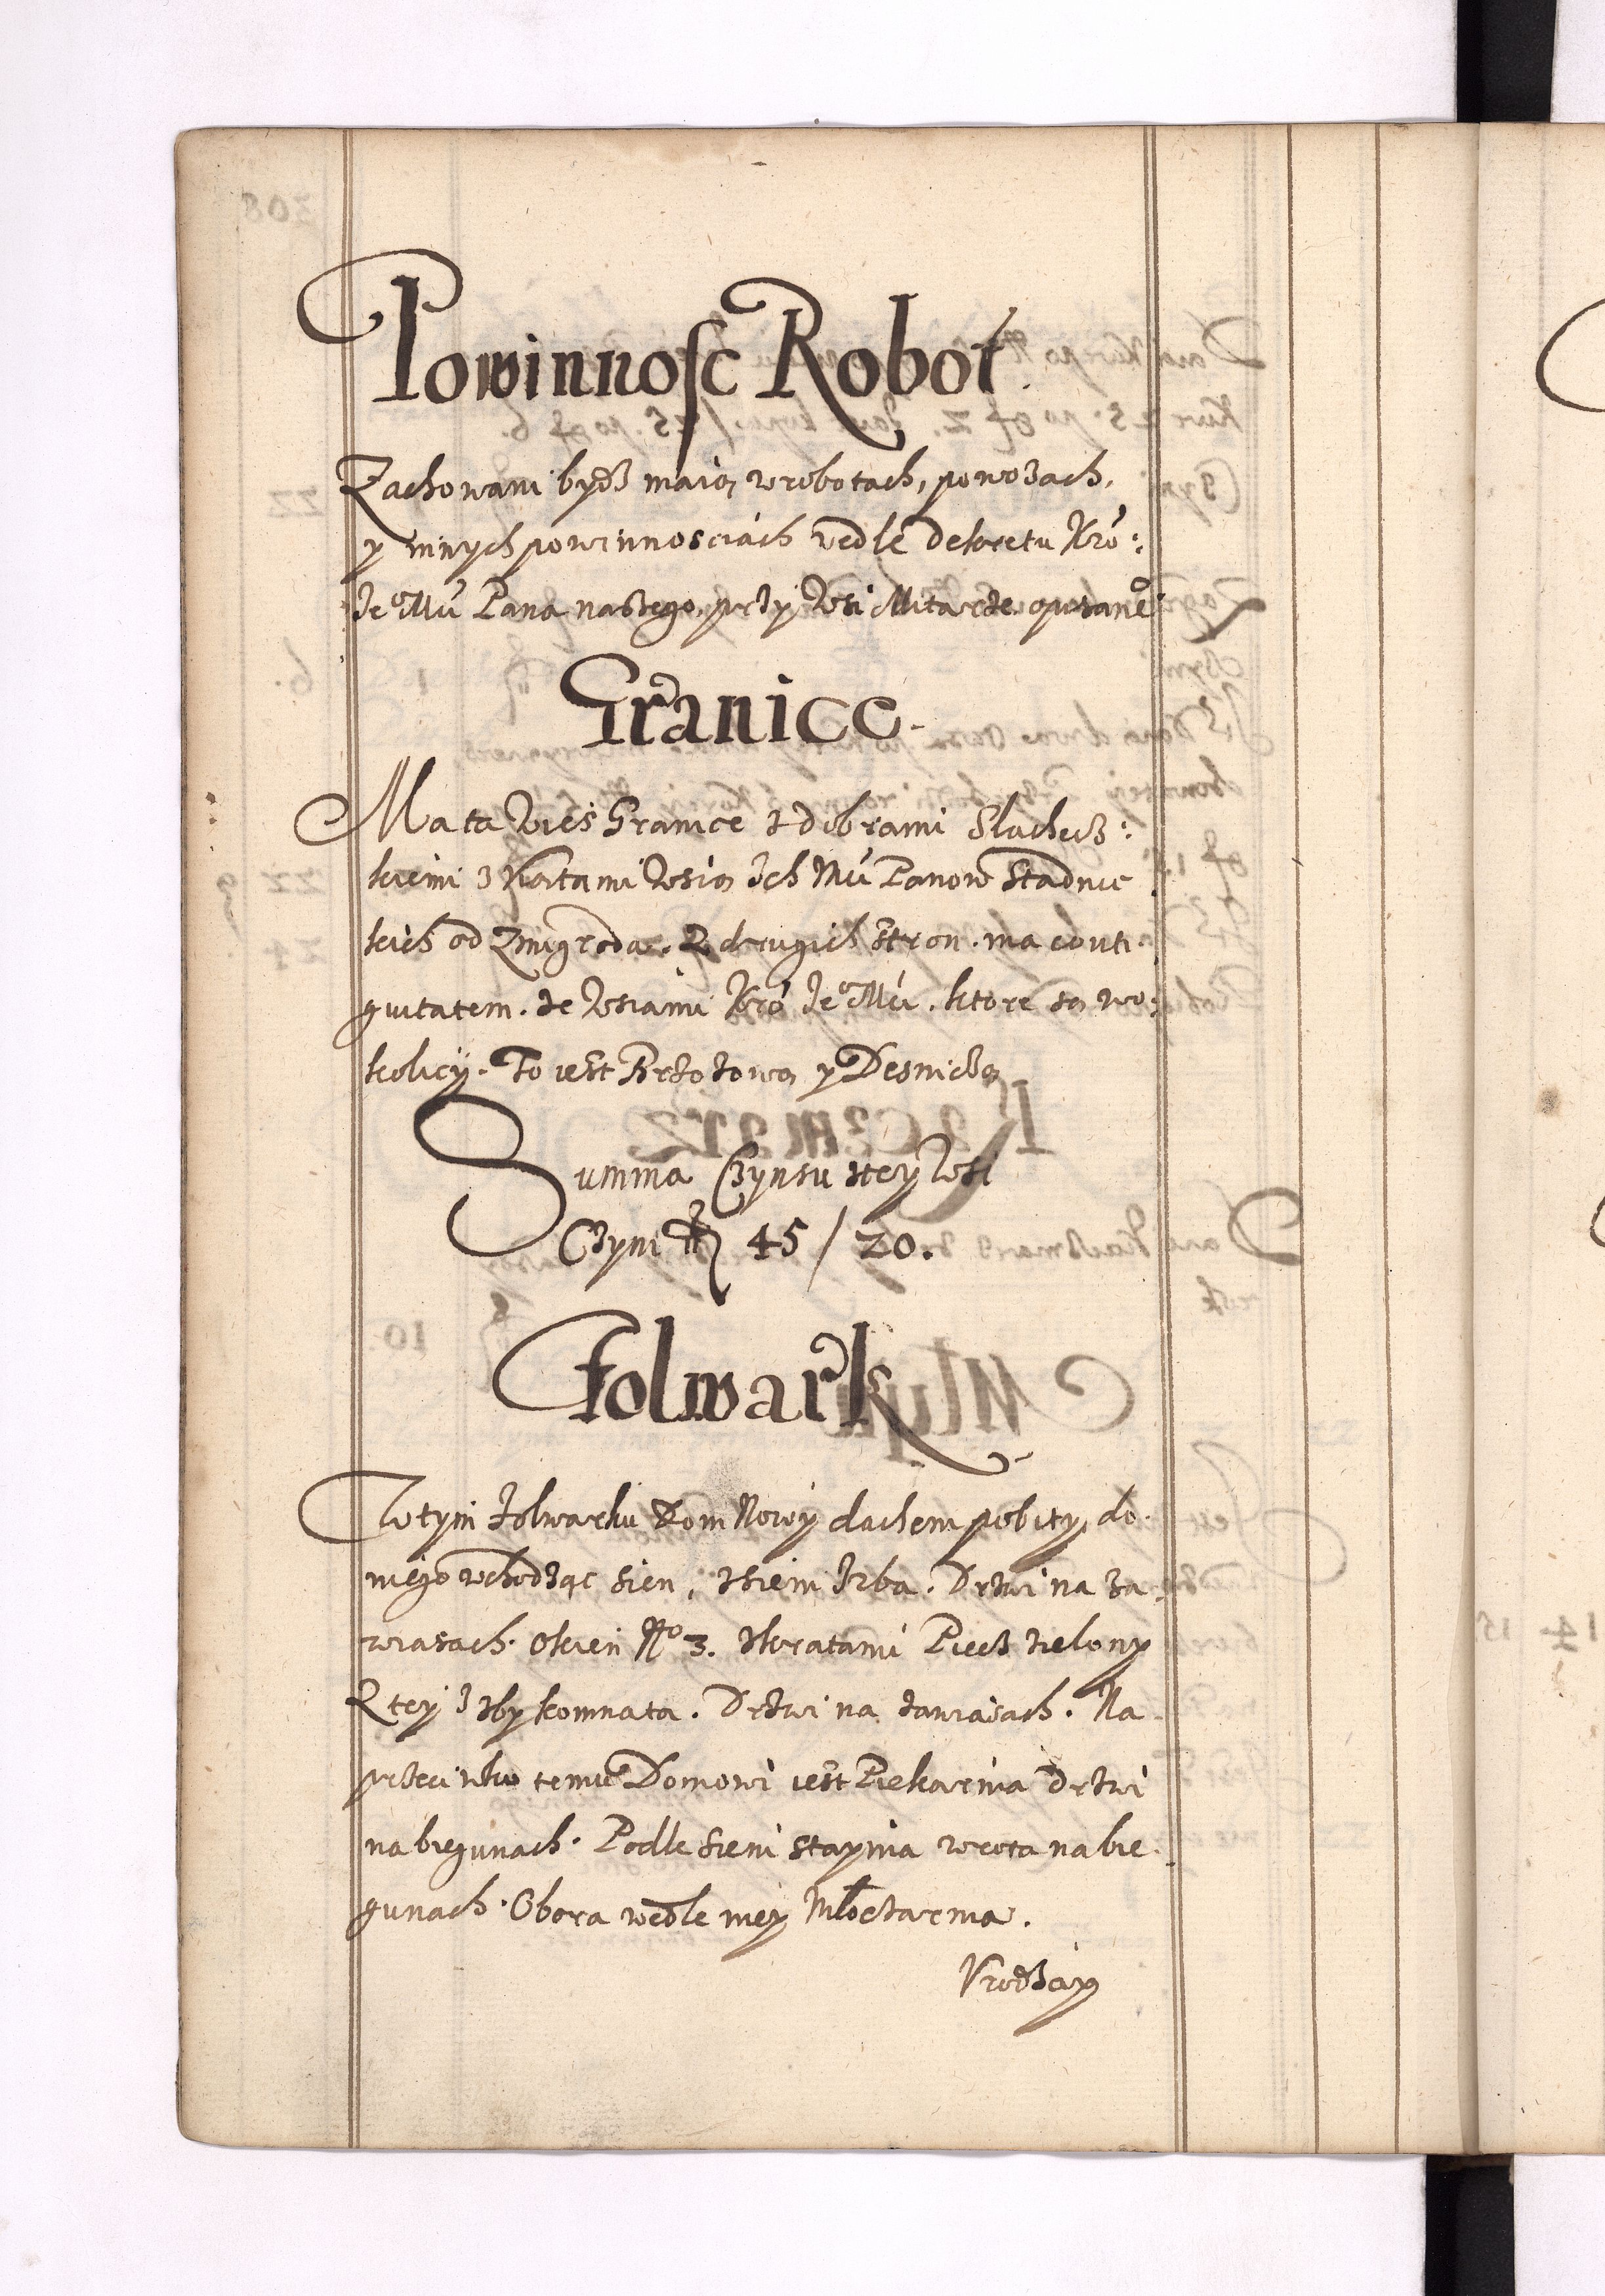 Powinnosc Robot.
Zachowani bydź maią w robotach, powozach,
y innych powinnosciach vedle dekretu Kro:
Je° Mci Pana naszego, przy Wsi Mitarze opisane°
Granice.
Ma ta Wies Granice z dobrami Slachecz:
kiemi z Kątami Wsią Ich Mci Panow Stadnic
kich od Zmigroda. Z drugich stron. ma conti
guitatem. ze Wsiami Kro Je° Mci. ktore są w o:
kolicy. To iest Brzozową y Desnicką
Summa Czynsu z tey Wsi
Czyni fl 45 / 20.
Folwark
W tym Folwarku Dom Nowy dachem pobity, do
niego wchodząc sien, z sieni Izba. Drzwi na za
wiasach. Okien N° 3. z kratami Piecz zielony
Z tey Izby komnata. Drzwi na zawiasach. Na
przeciwko temu Domowi iest Piekarnia Drzwi
na biegunach. Podle sieni staynia wrota na bie
gunach. Obora wedle niey Mloczarnia.
Vrodzay